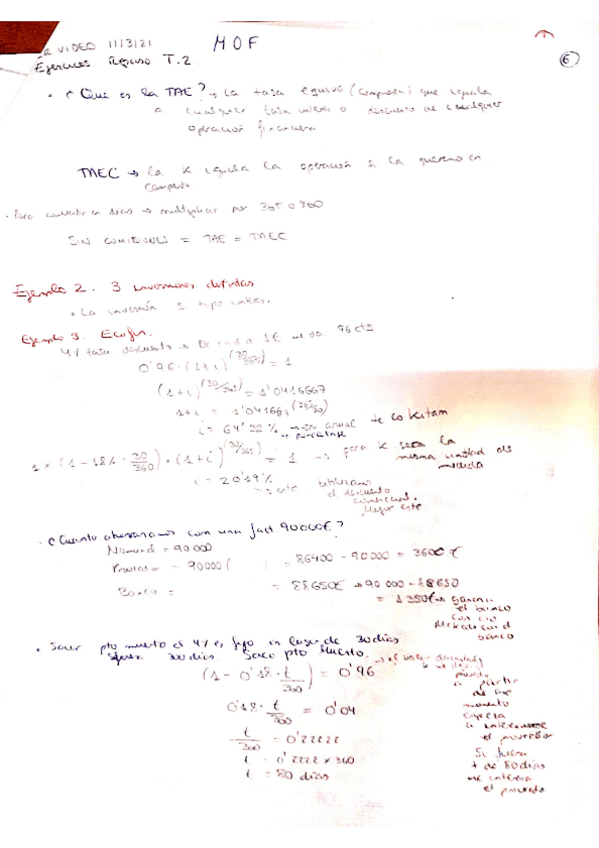 VIDEO 11/3/21 MOF 6
Ejercicios Repaso T.2.
• ¿Qué es la TAE? → La tasa equiva (compuesta) que iguala
a cualquier tasa interes o descuento de cualquier
operación financiera
TAEC → la K iguala la operación si la queremos en
compuesta
• Para convertir en dias → multiplicar por 365 o 360
SIN COMISIONES = TAE = TAEC
Ejemplo 2. 3 inversiones distintas
• La inversión tipo interes.
Ejemplo 3. Ecofin.
4% tasa descuento → De cada 1€ me da 96 cts
0'96 · (1+i)^(30/365) = 1
(1+i)^(30/365) = 1'0416667
1+i = 1'041667^(365/30)
i = 64'32% → anual te cobrarian
porcentaje
1 × (1 - 18% · 30/360) · (1+i)^(30/365) = 1 → para K sea la
misma unidad de
medida
i = 20'19%
→ este
el descuento
comercial.
Mejor este
• ¿Cuanto ahorraríamos con una fact 90000€?
Nominal = 90 000
Proveedor = 90000 ( = 86400 - 90 000 = 3600 €
Banco = = 88650€ → 90 000 - 88650
= 1350€ → ganancia
el banco
con
el
banco
• Sacar pto muerto el 4% es fijo en lugar de 30 dias
300 dias. Saco pto Muerto.
(1 - 0'18 · t/360) = 0'96 → el valor descontado
a partir
de ese
momento
empieza
a interesarme
el proveedor
0'18 · t/360 = 0'04
t/360 = 0'22222
t = 0'2222 × 360
t = 80 dias
Si fuera
+ de 80 dias
me interesa
el proveedor